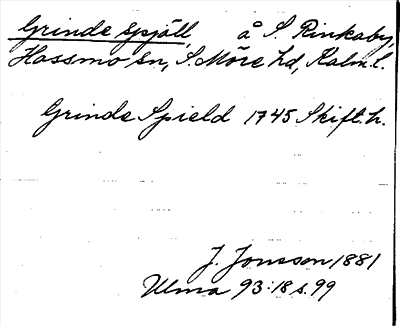 Grinde Spjäll, å S. Rinkaby,
Hossmo sn, S. Möre hd, Kalm. l.
Grinde Spield 1745 Skift. h.
J. Jonsson 1881
Ulma 93:18 s. 99